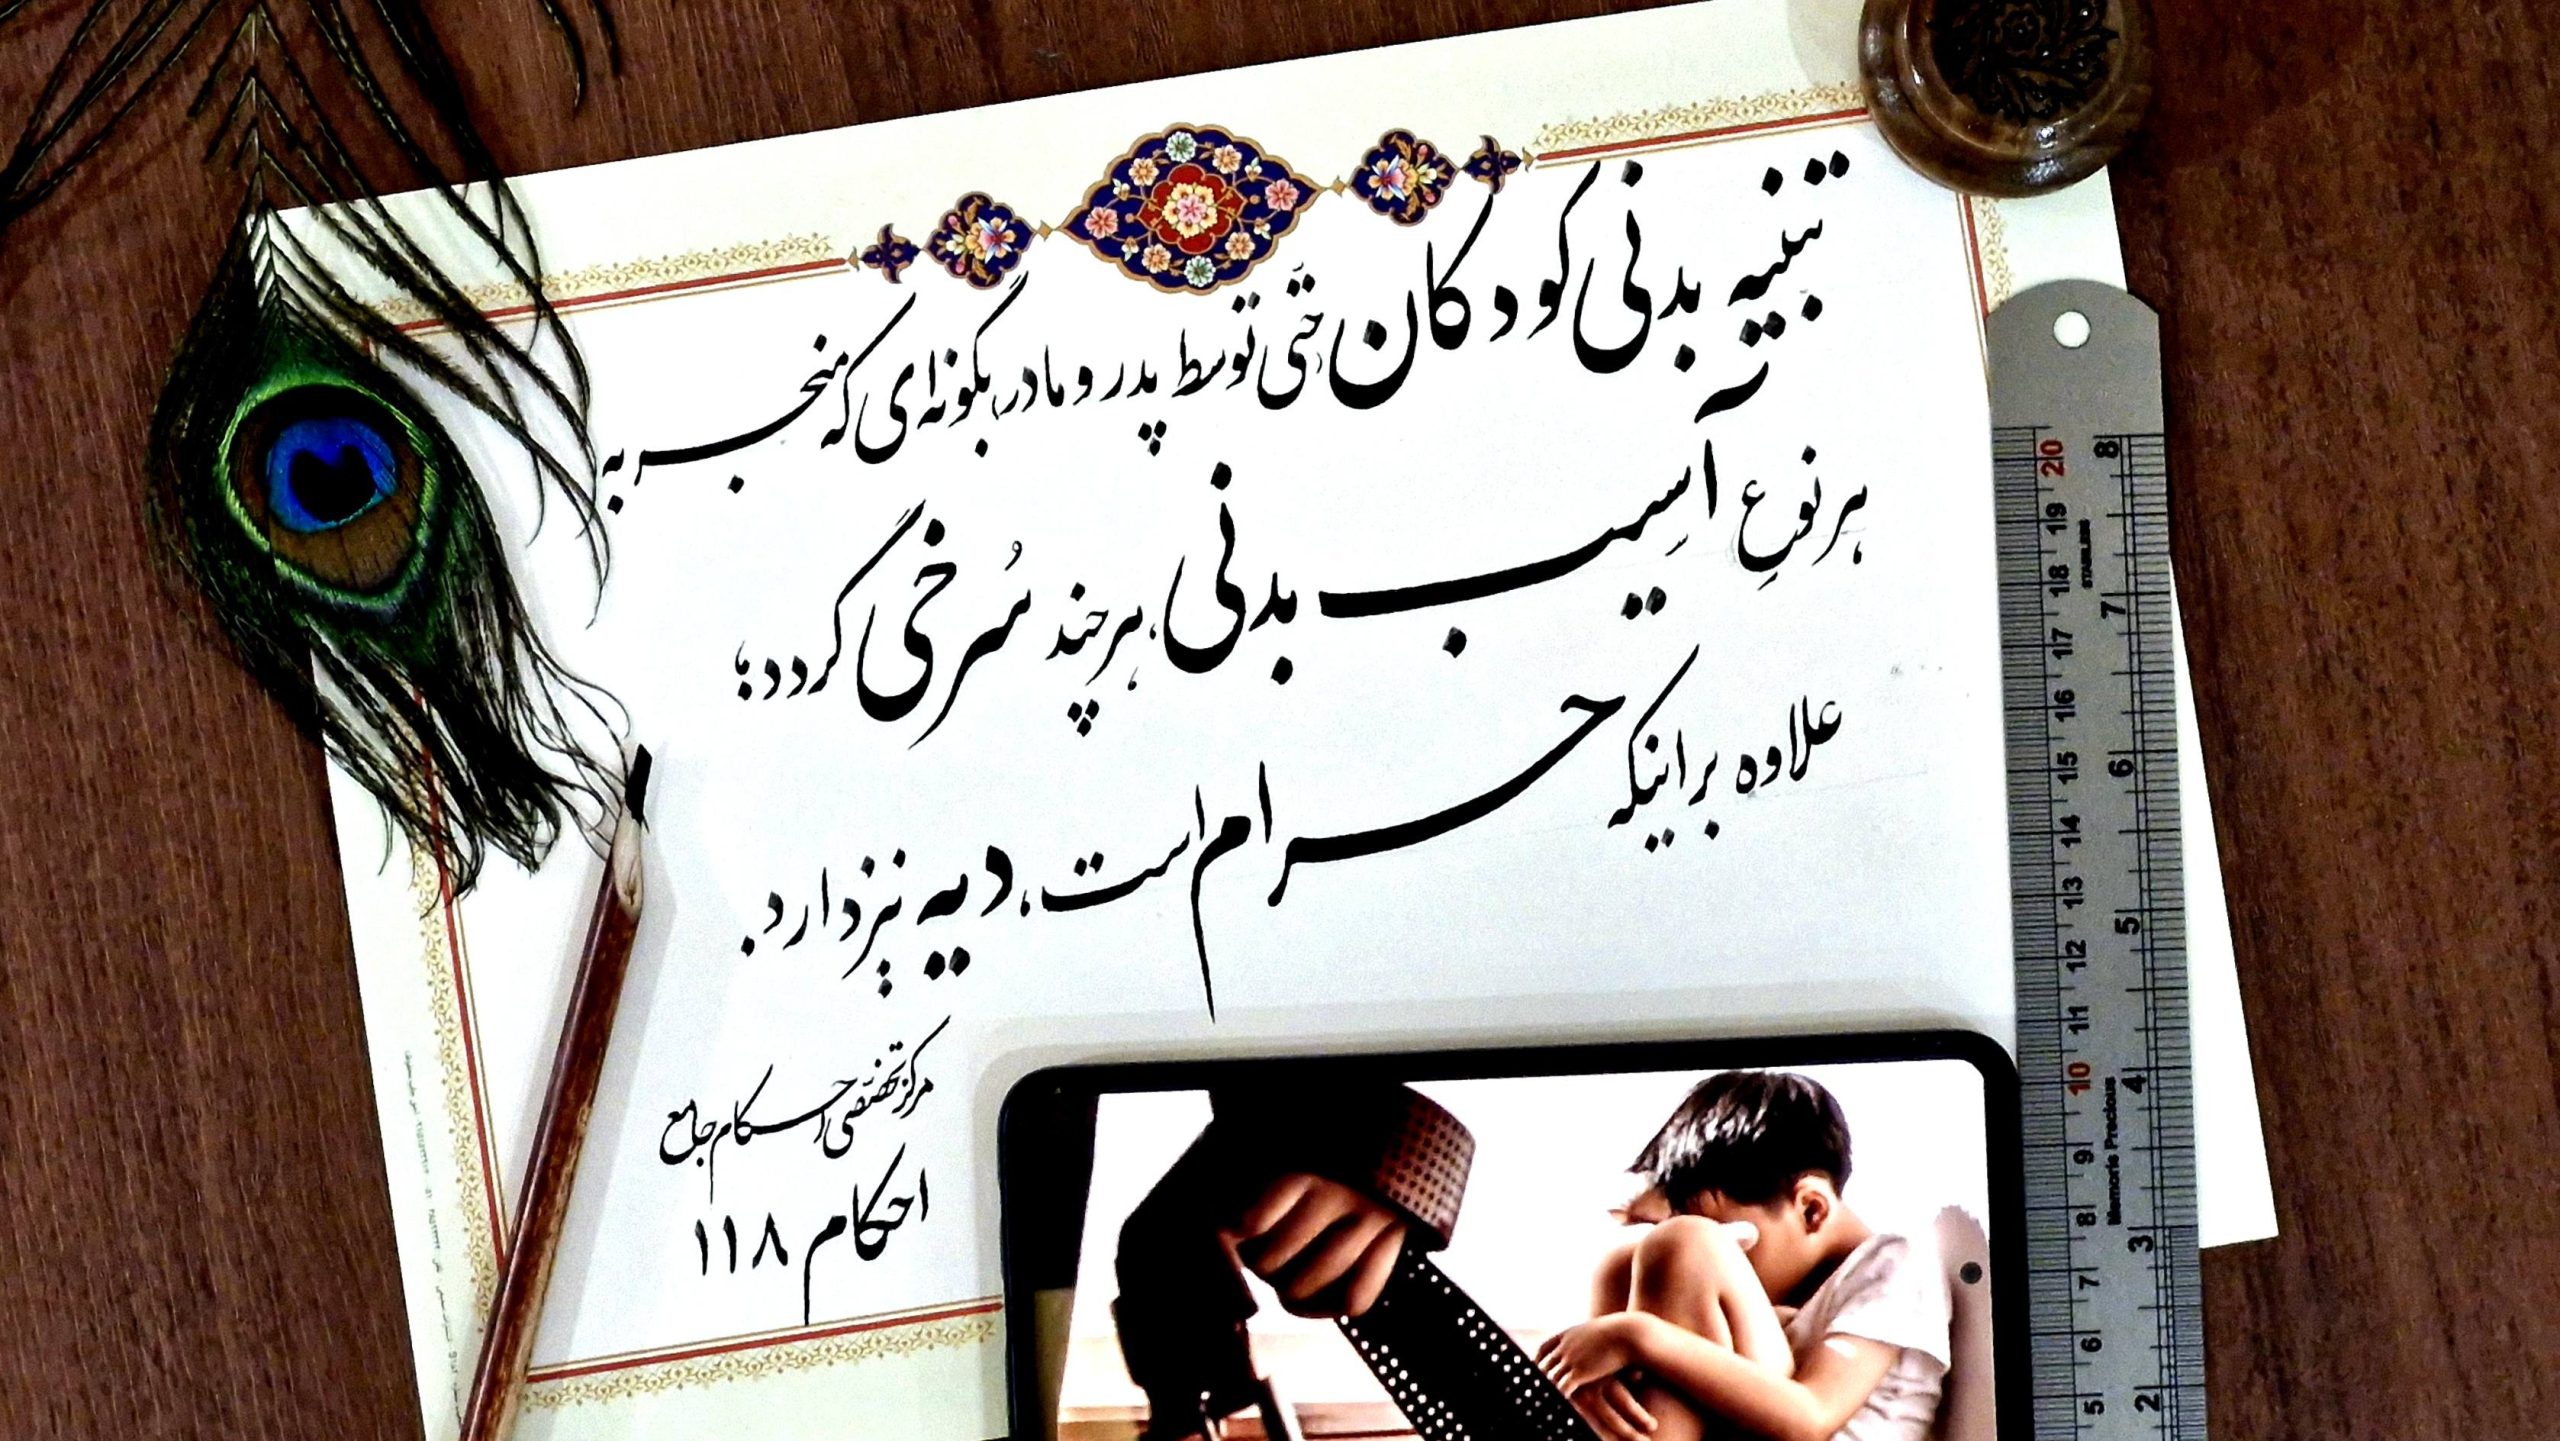 تنبیه بدنی کودکان، حتّی توسط پدر و مادر، بگونه‌ای که منجر به
هر نوعِ آسیب بدنی، هر چند سُرخی گردد؛
علاوه بر اینکه حرام است، دیه نیز دارد.
مرکز تخصّصی احکام جامع
احکام ۱۱۸
20 19 18 17 16 15 14 13 12 11 10 9 8 7 6 5
8 7 6 5 4 3 2
STAINLESS
Memoris Precious